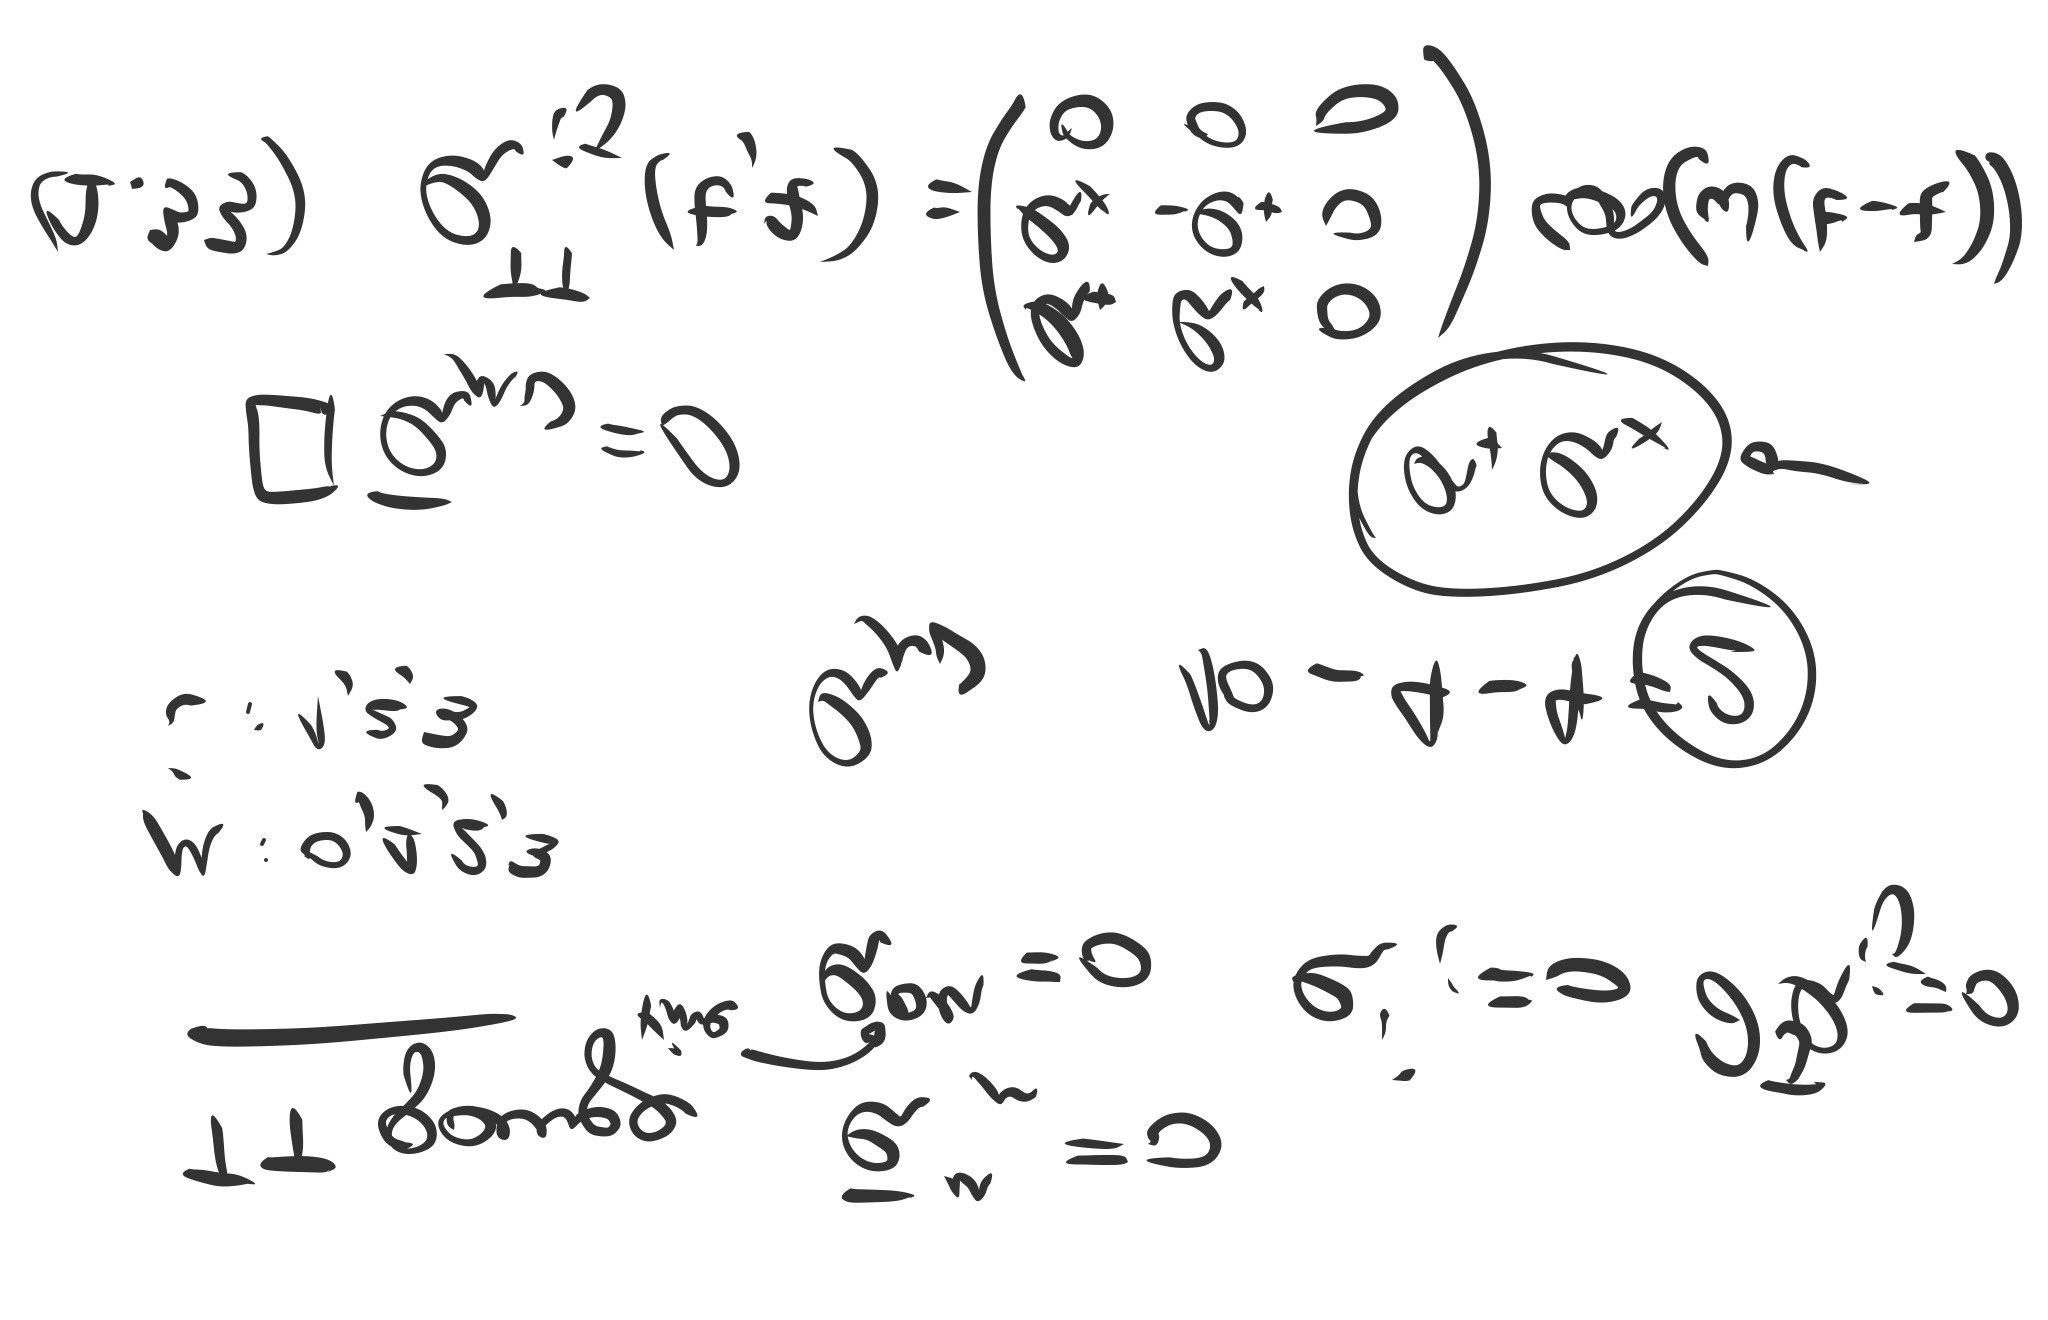 TT gauge h̄^μ_μ = 0
time h^{0μ} = 0 h^i_i = 0 ∂^j h_{ij} = 0
μ : 0,1,2,3
i : 1,2,3
h_{μν} 10 - 4 - 4 = 2
h_+ h_×
□ h̄_{μν} = 0
(1.33) h^{TT}_{ij} (t,z) = ( h_+ h_× 0
h_× -h_+ 0
0 0 0 ) cos(ω(t-z))